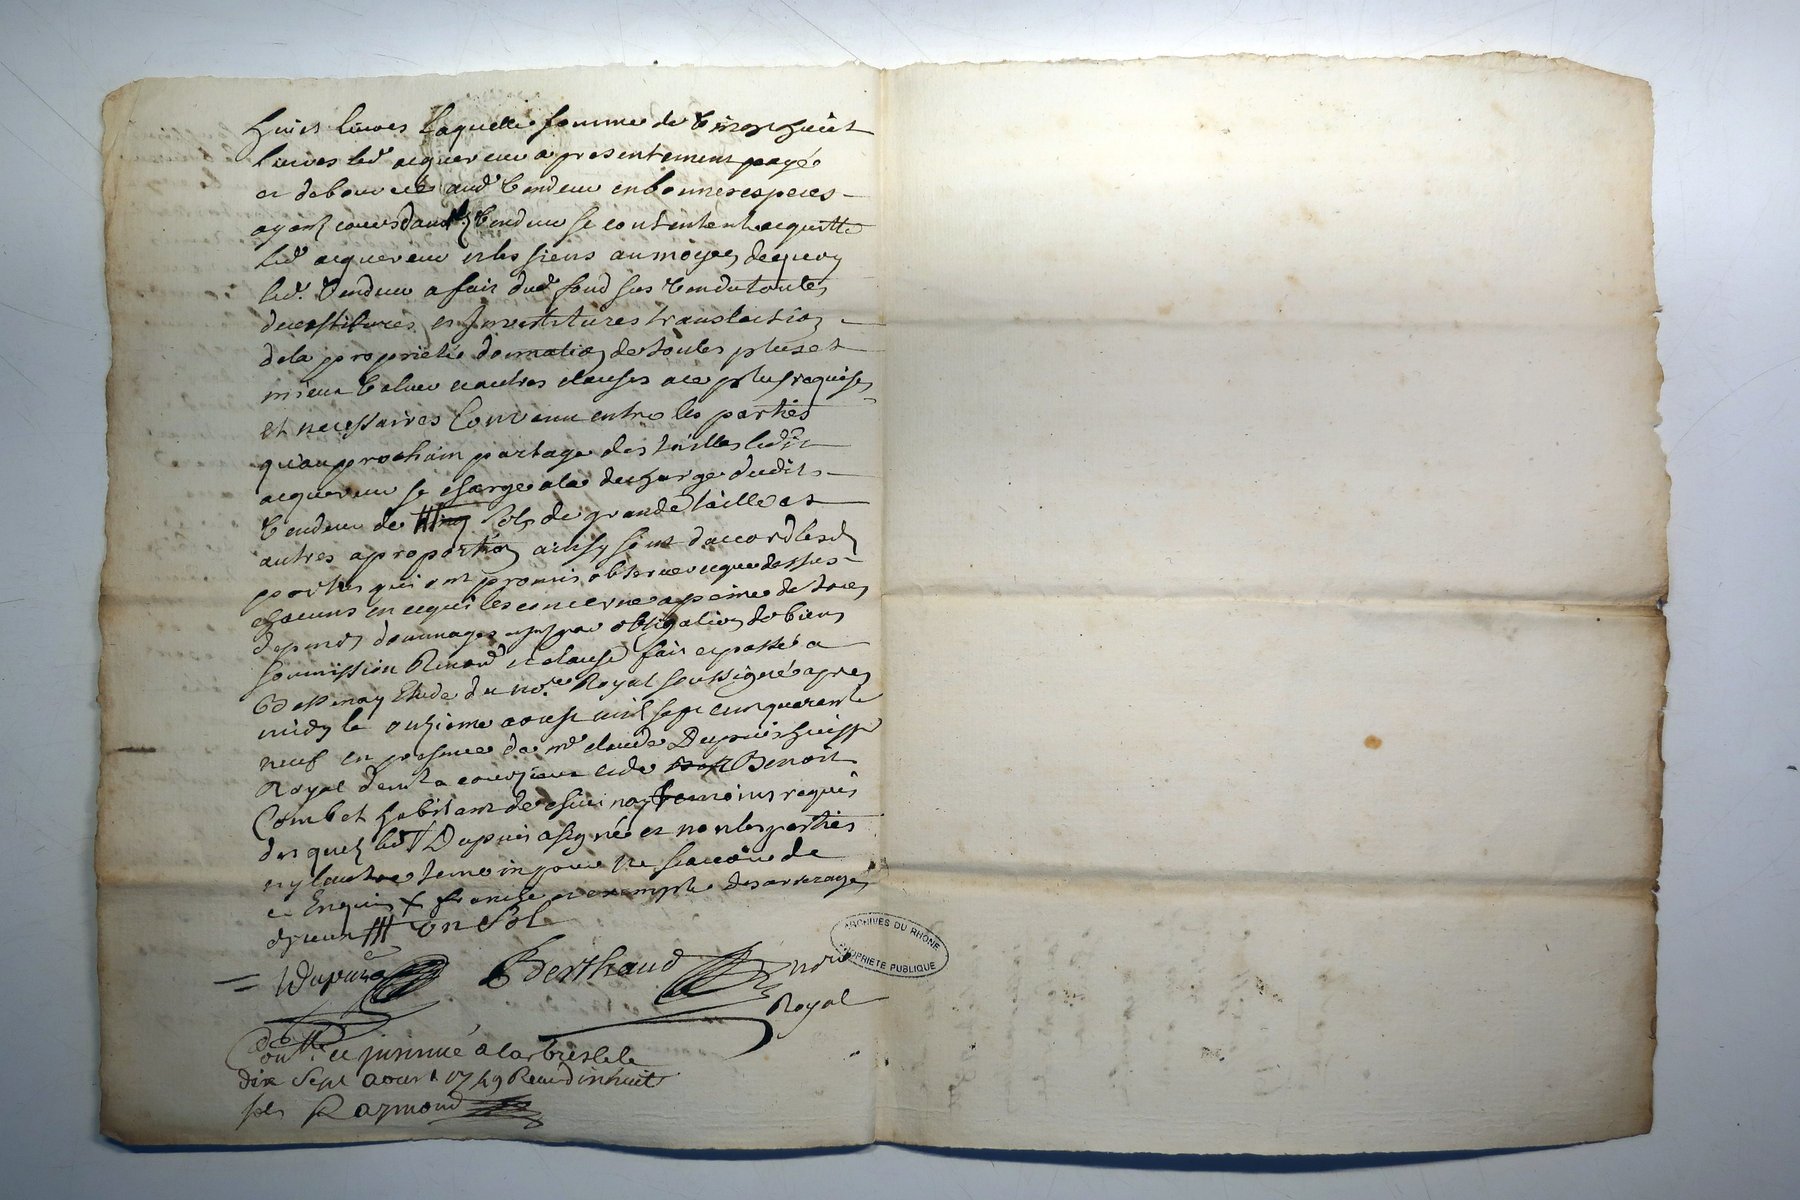 huit livres laquelle somme de vingt huit
livres led. acquereur a presentement payé
et debourcé aud. vendeur en bonnes especes
ayant cours dont le vendeur se contente et acquitte
led. acquereur et les siens au moyen dequoy
led. vendeur a fait dud. fond sus vendu toutes
devestitures et Investitures translation
dela proprieté donnation de toutes plus et
mieux value et autres clauses a ce plus requises
et necessaires Convenu entre les parties
qu'au prochain partage des tailles ledit
acquereur se charge a la decharge dudit
vendeur de sols de grande taille et
autres a proportion ainsy sont d'accord lesd.
parties qui ont promis observer ce que dessus
chacuns en ce qui les concerne a peine de tous
depends dommages obligation de biens
soumission Renon. et clauses fait et passé a
Bessenay Etude du no.re Royal soussigné apres
midy le onzieme aoust mil sept cent quarante
neuf en presence de me claude Dupuis huissr
Royal dem.t a courzieux et de Benoit
Combet habitant de chevinay temoins requis
des quels led. Dupuis a signé et non les parties
ny l'autre temoin pour ne scavoir de
ce Enquis X franche et exempte des arrerages
##  un sol
Dupuis Berthaud nore
Royal
Con.llé et insinué a larbresle le
dix sept aout 1749 Receu dixhuit
sols Raymond
ARCHIVES DU RHÔNE
PROPRIÉTÉ PUBLIQUE